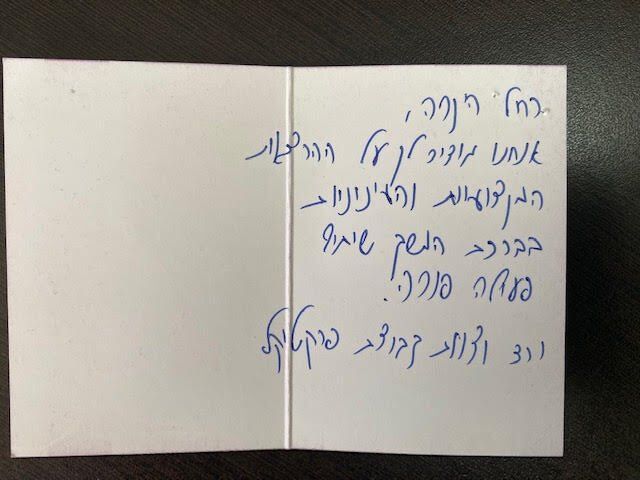 רחל היקרה,
אנחנו מודים לך על ההרצאות
המקצועיות והעניניות
בברכת המשך שיתוף
פעולה פורה.
ורד וצוות קבוצת פרקטיקל